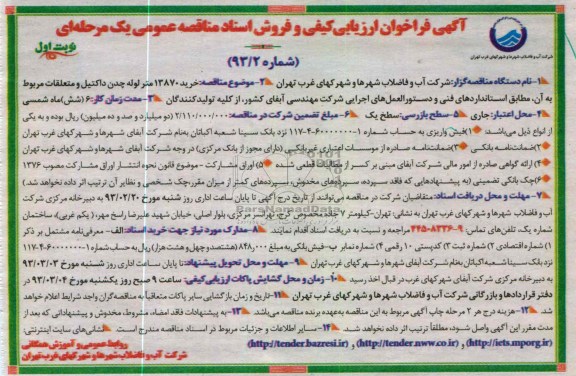 آگهی فراخوان ارزیابی کیفی و فروش اسناد مناقصه عمومی یک مرحله‌ای
نوبت اول
(شماره ۹۳/۲)
شرکت آب و فاضلاب شهرها و شهرکهای غرب تهران
۱-نام دستگاه مناقصه‌گزار: شرکت آب و فاضلاب شهرها و شهرکهای غرب تهران ۲-موضوع مناقصه: خرید ۱۳۸۷۰ متر لوله چدن داکتیل و متعلقات مربوط
به آن، مطابق استانداردهای فنی و دستورالعمل‌های اجرایی شرکت مهندسی آبفای کشور، از کلیه تولیدکنندگان ۳-مدت زمان کار: ۶ (شش) ماه شمسی
۴-محل اعتبار: جاری ۵-سطح بازرسی: سطح یک ۶-مبلغ تضمین شرکت در مناقصه: ۲/۱۱۰/۰۰۰/۰۰۰ (دو میلیارد و صد و ده میلیون) ریال بوده و به یکی
از انواع ذیل می‌باشد: ۱)فیش واریزی به حساب شماره ۱-۶۰۰۰۰۰۰-۴-۱۱۷ نزد بانک سینا شعبه اکباتان بنام شرکت آبفای شهرها و شهرکهای غرب تهران
۲)ضمانت‌نامه بانکی ۳)ضمانتنامه صادره از موسسات اعتباری غیربانکی (دارای مجوز از بانک مرکزی) در وجه شرکت آبفای شهرها و شهرکهای غرب تهران
۴) ارائه گواهی صادره از امور مالی شرکت آبفای مبنی بر کسر از مطالبات قطعی شده ۵) اوراق مشارکت - موضوع قانون نحوه انتشار اوراق مشارکت مصوب ۱۳۷۶
۶)چک بانکی تضمینی (به پیشنهادهایی که فاقد سپرده، سپرده‌های مخدوش، سپرده‌های کمتر از میزان مقرر، چک شخصی و نظایر آن ترتیب اثر داده نخواهد شد.)
۷- مهلت و محل دریافت اسناد: متقاضیان شرکت در مناقصه می‌توانند از تاریخ درج آگهی تا پایان ساعت اداری روز شنبه مورخ ۹۳/۰۲/۲۰ به دبیرخانه مرکزی شرکت
آب و فاضلاب شهرها و شهرکهای غرب تهران به نشانی: تهران-کیلومتر ۷ جاده مخصوص کرج، تهرانسر مرکزی، بلوار اصلی، خیابان شهید علیرضا راسخ مهر، (یکم غربی)، ساختمان
شماره یک، تلفن‌های تماس: ۹-۴۴۵۰۸۳۲۶ مراجعه و نسبت به دریافت اسناد اقدام نمایند. ۸-مدارک مورد نیاز جهت خرید اسناد: الف-معرفی‌نامه مشتمل بر ذکر
۱) شماره اقتصادی ۲) شماره ثبت ۳) کدپستی ۱۰ رقمی ۴) شماره نمابر ب-فیش بانکی به مبلغ ۸۴۸/۰۰۰ (هشتصد و چهل و هشت هزار) ریال به حساب شماره ۱-۶۰۰۰۰۰۰-۴-۱۱۷
نزد بانک سینا شعبه اکباتان بنام شرکت آبفای شهرها و شهرکهای غرب تهران ۹-مهلت و محل تحویل پیشنهاد: تا پایان ساعت اداری روز شنبه مورخ ۹۳/۰۳/۰۳
به دبیرخانه مرکزی شرکت آبفای شهرها و شهرکهای غرب در قبال اخذ رسید ۱۰-زمان و محل گشایش پاکات ارزیابی کیفی: ساعت ۹ صبح روز یکشنبه مورخ ۹۳/۰۳/۰۴ در
دفتر قراردادها و بازرگانی شرکت آب و فاضلاب شهرها و شهرکهای غرب تهران ۱۱-تاریخ و زمان بازگشایی سایر پاکات متعاقباً به مناقصه‌گران واجد شرایط اعلام خواهد
شد ۱۲-هزینه درج هر ۲ مرحله چاپ آگهی مربوط به این مناقصه به‌عهده برنده مناقصه می‌باشد ۱۳-به پیشنهادات فاقد امضاء، مشروط، مخدوش و پیشنهاداتی که بعد از
مدت مقرر این آگهی واصل شود، مطلقاً ترتیب اثر داده نخواهد شد. ۱۴-سایر اطلاعات و جزئیات مربوط در اسناد مناقصه مندرج است. نشانی‌های سایت اینترنتی:
(http://iets.mporg.ir) , (http://tender.nww.co.ir) , (http://tender.bazresi.ir)
روابط عمومی و آموزش همگانی
شرکت آب و فاضلاب شهرها و شهرکهای غرب تهران